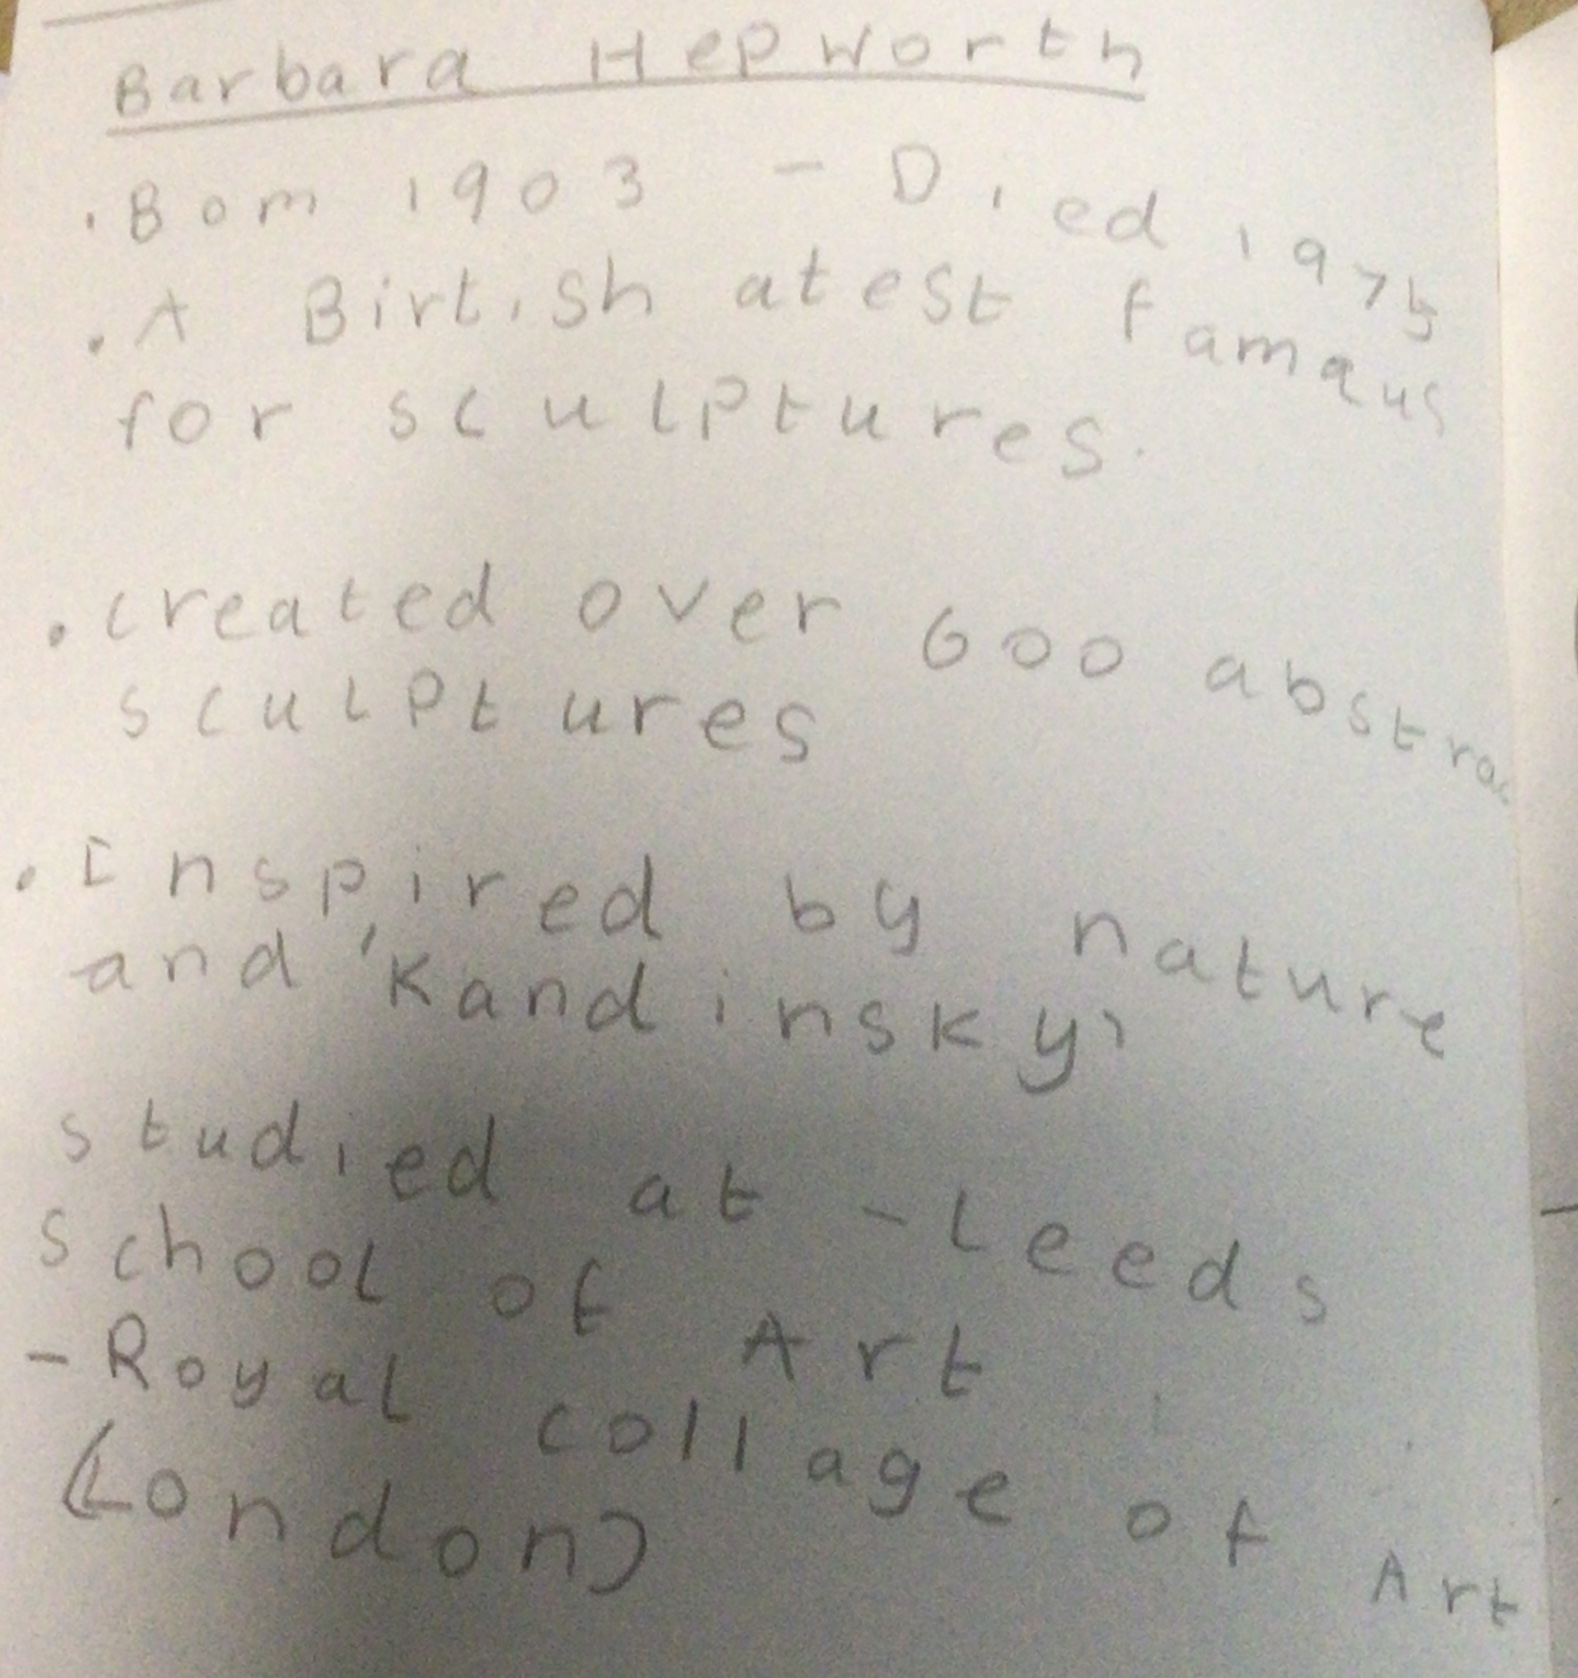 Barbara Hepworth
. Born 1903 - Died 1975
. A Birtish atest famous
for sculptures.
. created over 600 abstrac
sculptures
. Inspired by nature
and 'Kandinsky'
studied at - Leeds
School of Art
- Royal collage of Art
(London)